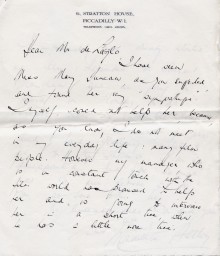 6, STRATTON HOUSE,
PICCADILLY W.1.
Dear Mr de
I have seen
Miss Mary Duncan as you suggested
and found her very sympathique
I myself could not help her because
as you know I do not meet
in my everyday life many other
people. However my manager who
is in constant touch with the
other world has promised to help
her and is going to interview
her in a short time when
he has a little more time.